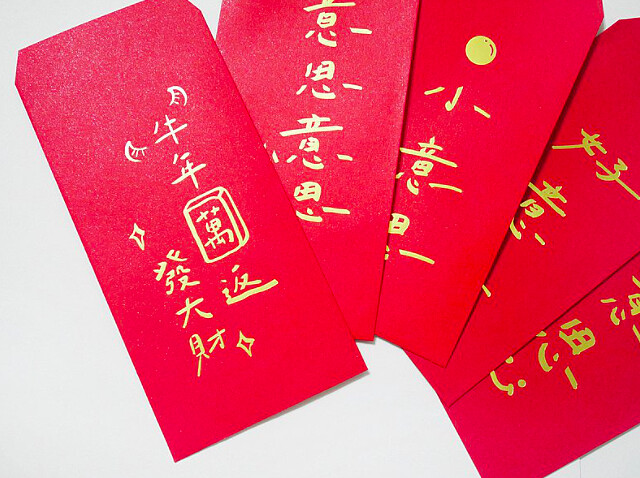 牛年萬返
發大財
意思意思
小意思
好意
意思